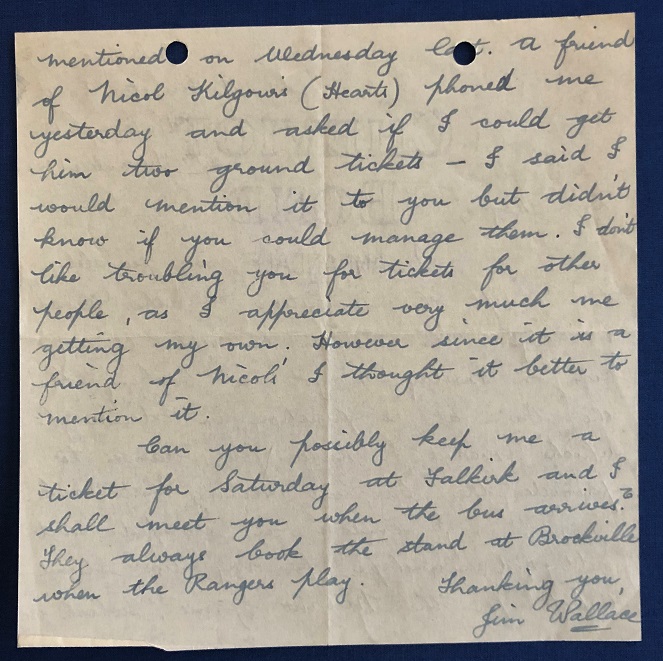 mentioned on Wednesday last. A friend
of Nicol Kilgour's (Hearts) phoned me
yesterday and asked if I could get
him two ground tickets – I said I
would mention it to you but didn't
know if you could manage them. I don't
like troubling you for tickets for other
people, as I appreciate very much me
getting my own. However since it is a
friend of Nicol's I thought it better to
mention it.
Can you possibly keep me a
ticket for Saturday at Falkirk and I
shall meet you when the bus arrives?
They always book the stand at Brockville
when the Rangers play. Thanking you,
Jim Wallace